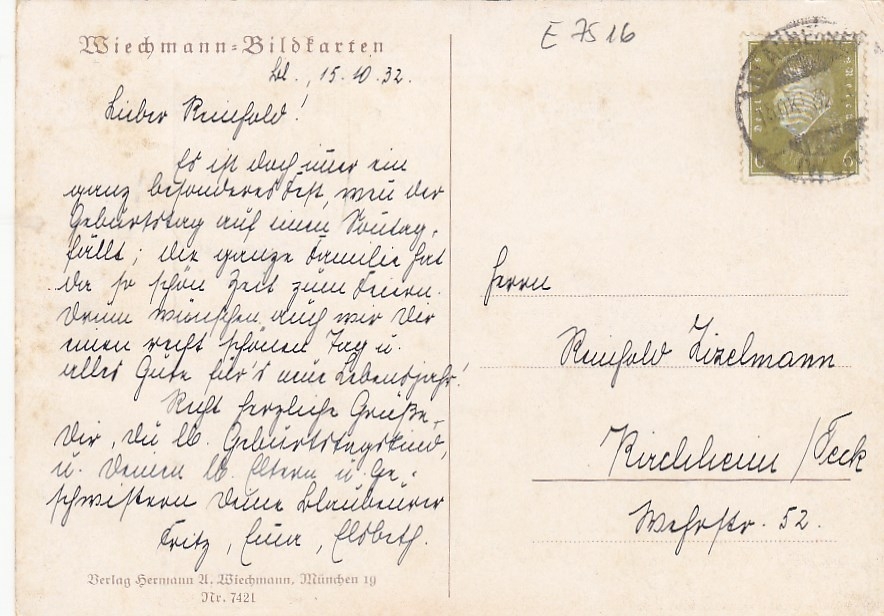 Wiechmann-Bildkarten
E 7516
Bl., 15.10.32.
Lieber Reinhold!
Es ist doch immer ein
ganz besonderes Fest, wenn der
Geburtstag auf einen Sonntag
fällt; die ganze Familie hat
da so schön Zeit zum Feiern.
Drum wünschen auch wir Dir
einen recht schönen Tag u.
alles Gute für's neue Lebensjahr!
Recht herzliche Grüße
Dir, Du lb. Geburtstagskind,
u. Deinen lb. Eltern u. Ge-
schwistern Deine Blaubeurer
Fritz, Emma, Elsbeth.
Verlag Hermann A. Wiechmann, München 19
Nr. 7421
Herrn
Reinhold Zizelmann
Kirchheim/Teck
Wehrstr. 52.